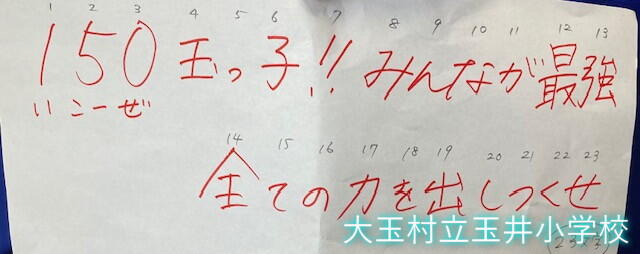 1 2 3 4 5 6 7 8 9 10 11 12 13
150 玉っ子!! みんなが最強
いこーぜ
14 15 16 17 18 19 20 21 22 23
全ての力を出しつくせ
大玉村立玉井小学校